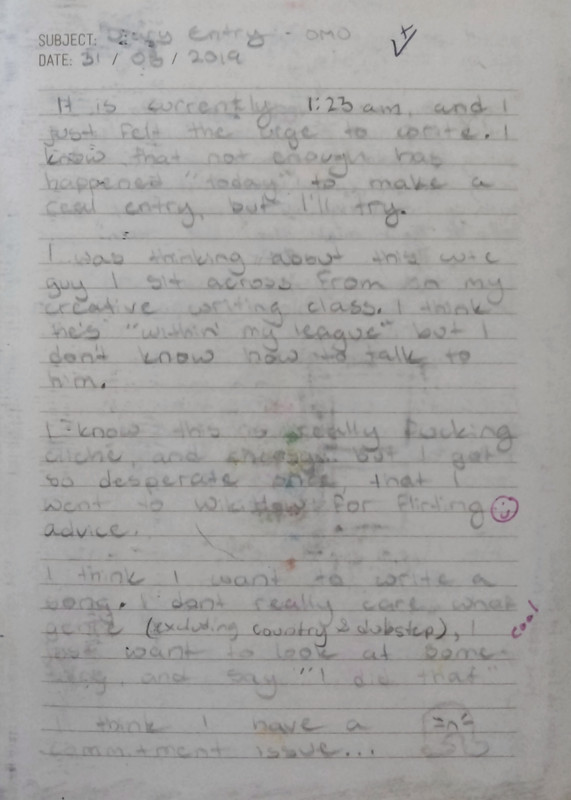 SUBJECT: Diary Entry - OMO
DATE: 31 / 03 / 2019
It is currently 1:23 am, and I
just felt the urge to write. I
know that not enough has
happened "today" to make a
real entry, but I'll try.
I was thinking about this cute
guy I sit across from in my
creative writing class. I think
he's "within my league" but I
don't know how to talk to
him.
I know this is really fucking
cliché, and cheesy, but I got
so desperate once, that I
went to WikiHow for flirting
advice.
I think I want to write a
song. I dont really care what
genre (excluding country & dubstep), I
cool
just want to look at some-
thing, and say "I did that"
I think I have a
commitment issue...